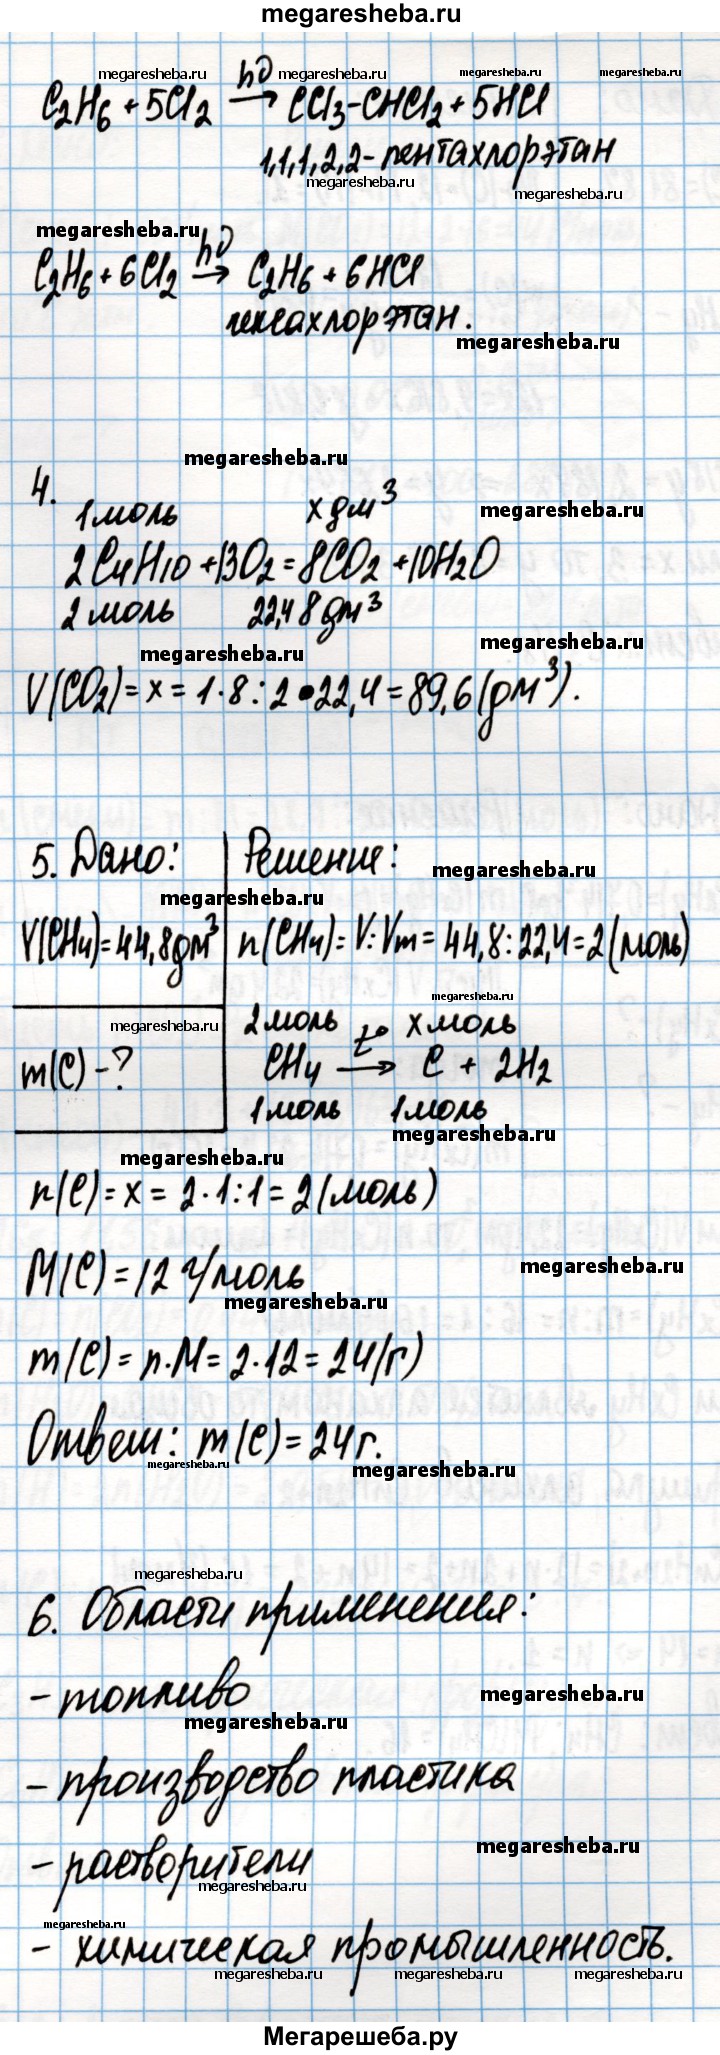 megaresheba.ru
megaresheba.ru megaresheba.ru megaresheba.ru megaresheba.ru
hν
C2H6 + 5Cl2 → CCl3-CHCl2 + 5HCl
1,1,1,2,2-пентахлорэтан
megaresheba.ru megaresheba.ru
megaresheba.ru
hν
C2H6 + 6Cl2 → C2H6 + 6HCl
гексахлорэтан.
megaresheba.ru
megaresheba.ru
4.
1 моль x дм³
megaresheba.ru
2C4H10 + 13O2 = 8CO2 + 10H2O
2 моль 22,4 8 дм³
megaresheba.ru
megaresheba.ru
V(CO2) = x = 1·8:2•22,4 = 89,6 (дм³).
5. Дано: Решение:
megaresheba.ru
megaresheba.ru
V(CH4) = 44,8 дм³ n(CH4) = V:Vm = 44,8:22,4 = 2 (моль)
megaresheba.ru
megaresheba.ru
2 моль t° x моль
m(C) - ? CH4 → C + 2H2
1 моль 1 моль
megaresheba.ru
megaresheba.ru
n(C) = x = 2·1:1 = 2 (моль)
megaresheba.ru
M(C) = 12 г/моль
megaresheba.ru
m(C) = n·M = 2·12 = 24 (г)
Ответ: m(C) = 24 г.
megaresheba.ru
megaresheba.ru
megaresheba.ru
6. Области применения:
- топливо
megaresheba.ru
megaresheba.ru
- производство пластика
megaresheba.ru
- растворители
megaresheba.ru
megaresheba.ru
- химическая промышленность.
megaresheba.ru megaresheba.ru megaresheba.ru
Мегарешеба.ру